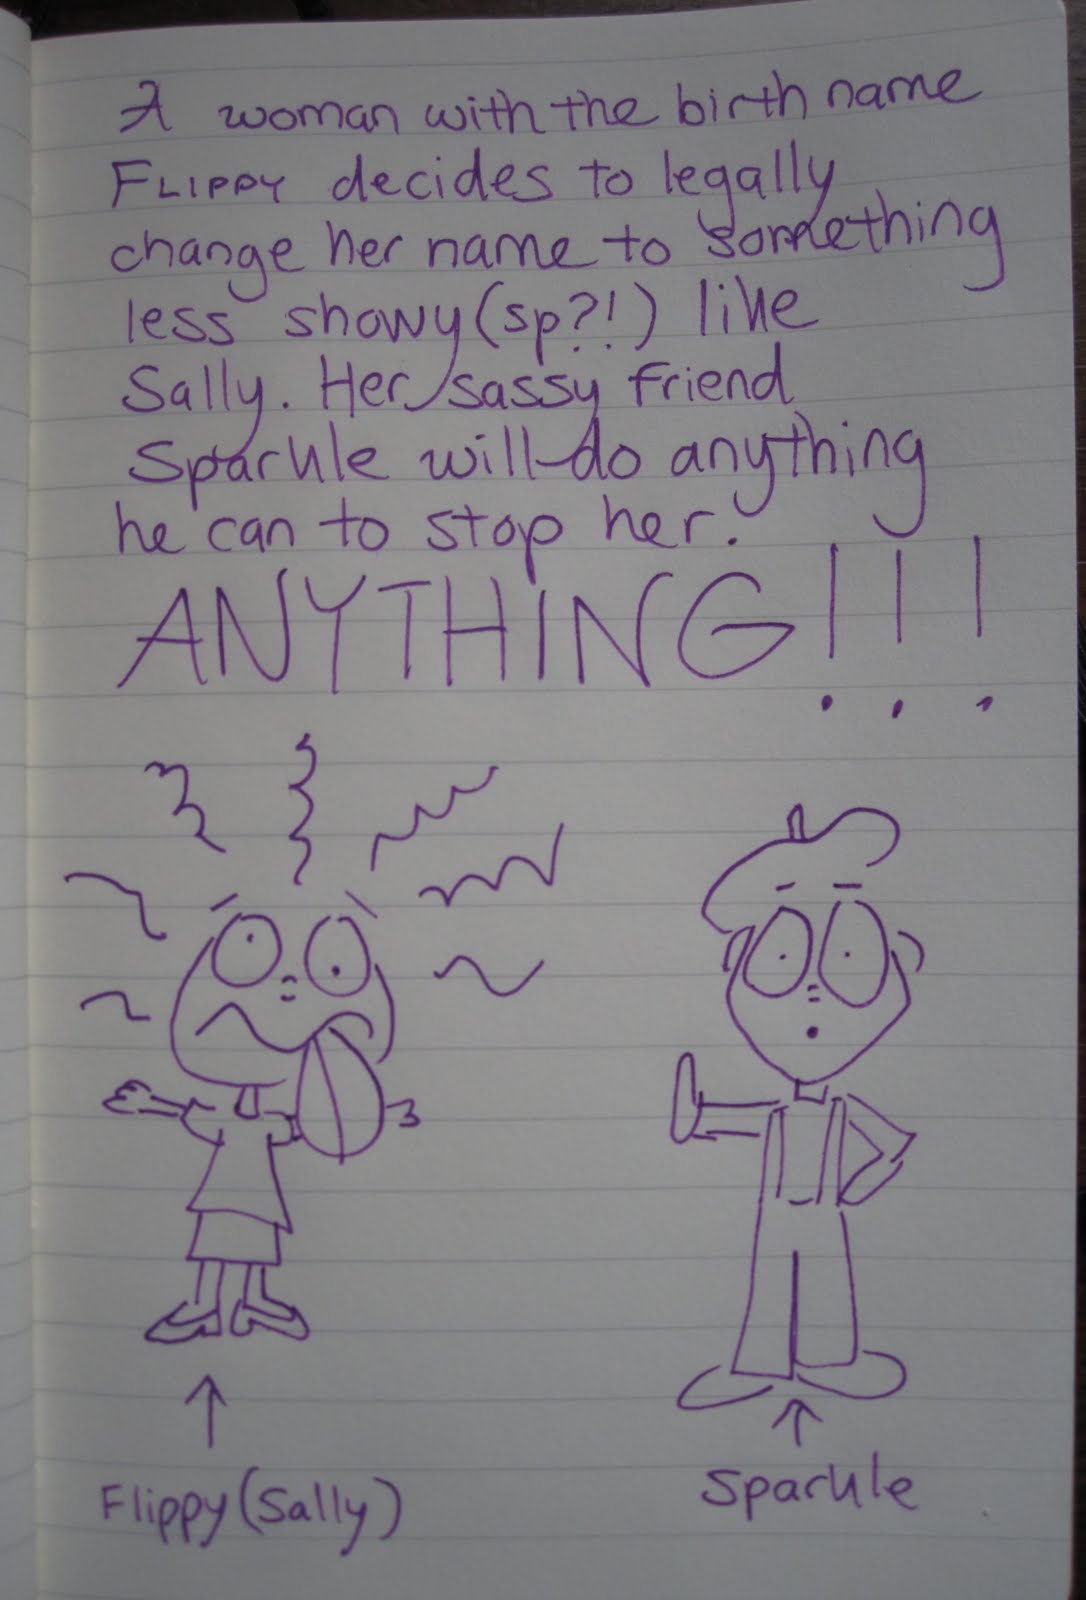 A woman with the birth name
FLIPPY decides to legally
change her name to something
less showy (sp?!) like
Sally. Her sassy friend
Sparkle will do anything
he can to stop her.
ANYTHING!!!
Flippy (Sally)
Sparkle